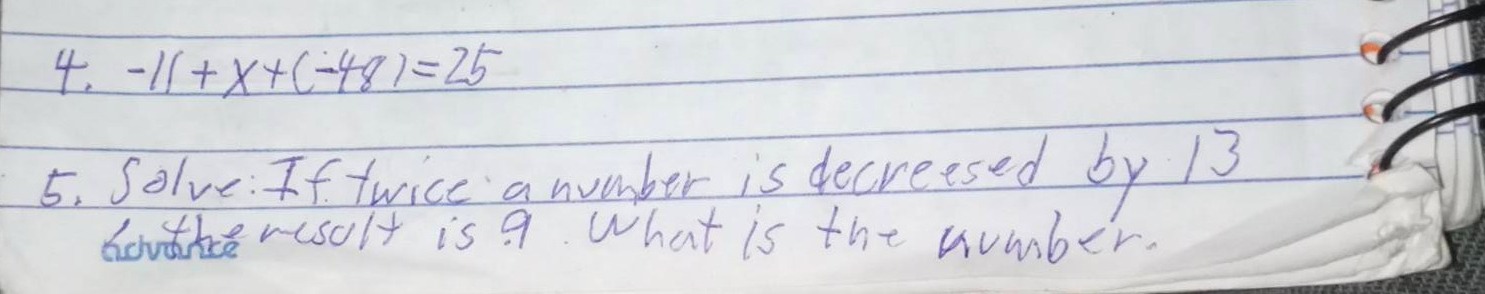 4. -11+x+(-48)=25
5. Solve: If twice a number is decreesed by 13
the result is 9. What is the number.
Advance